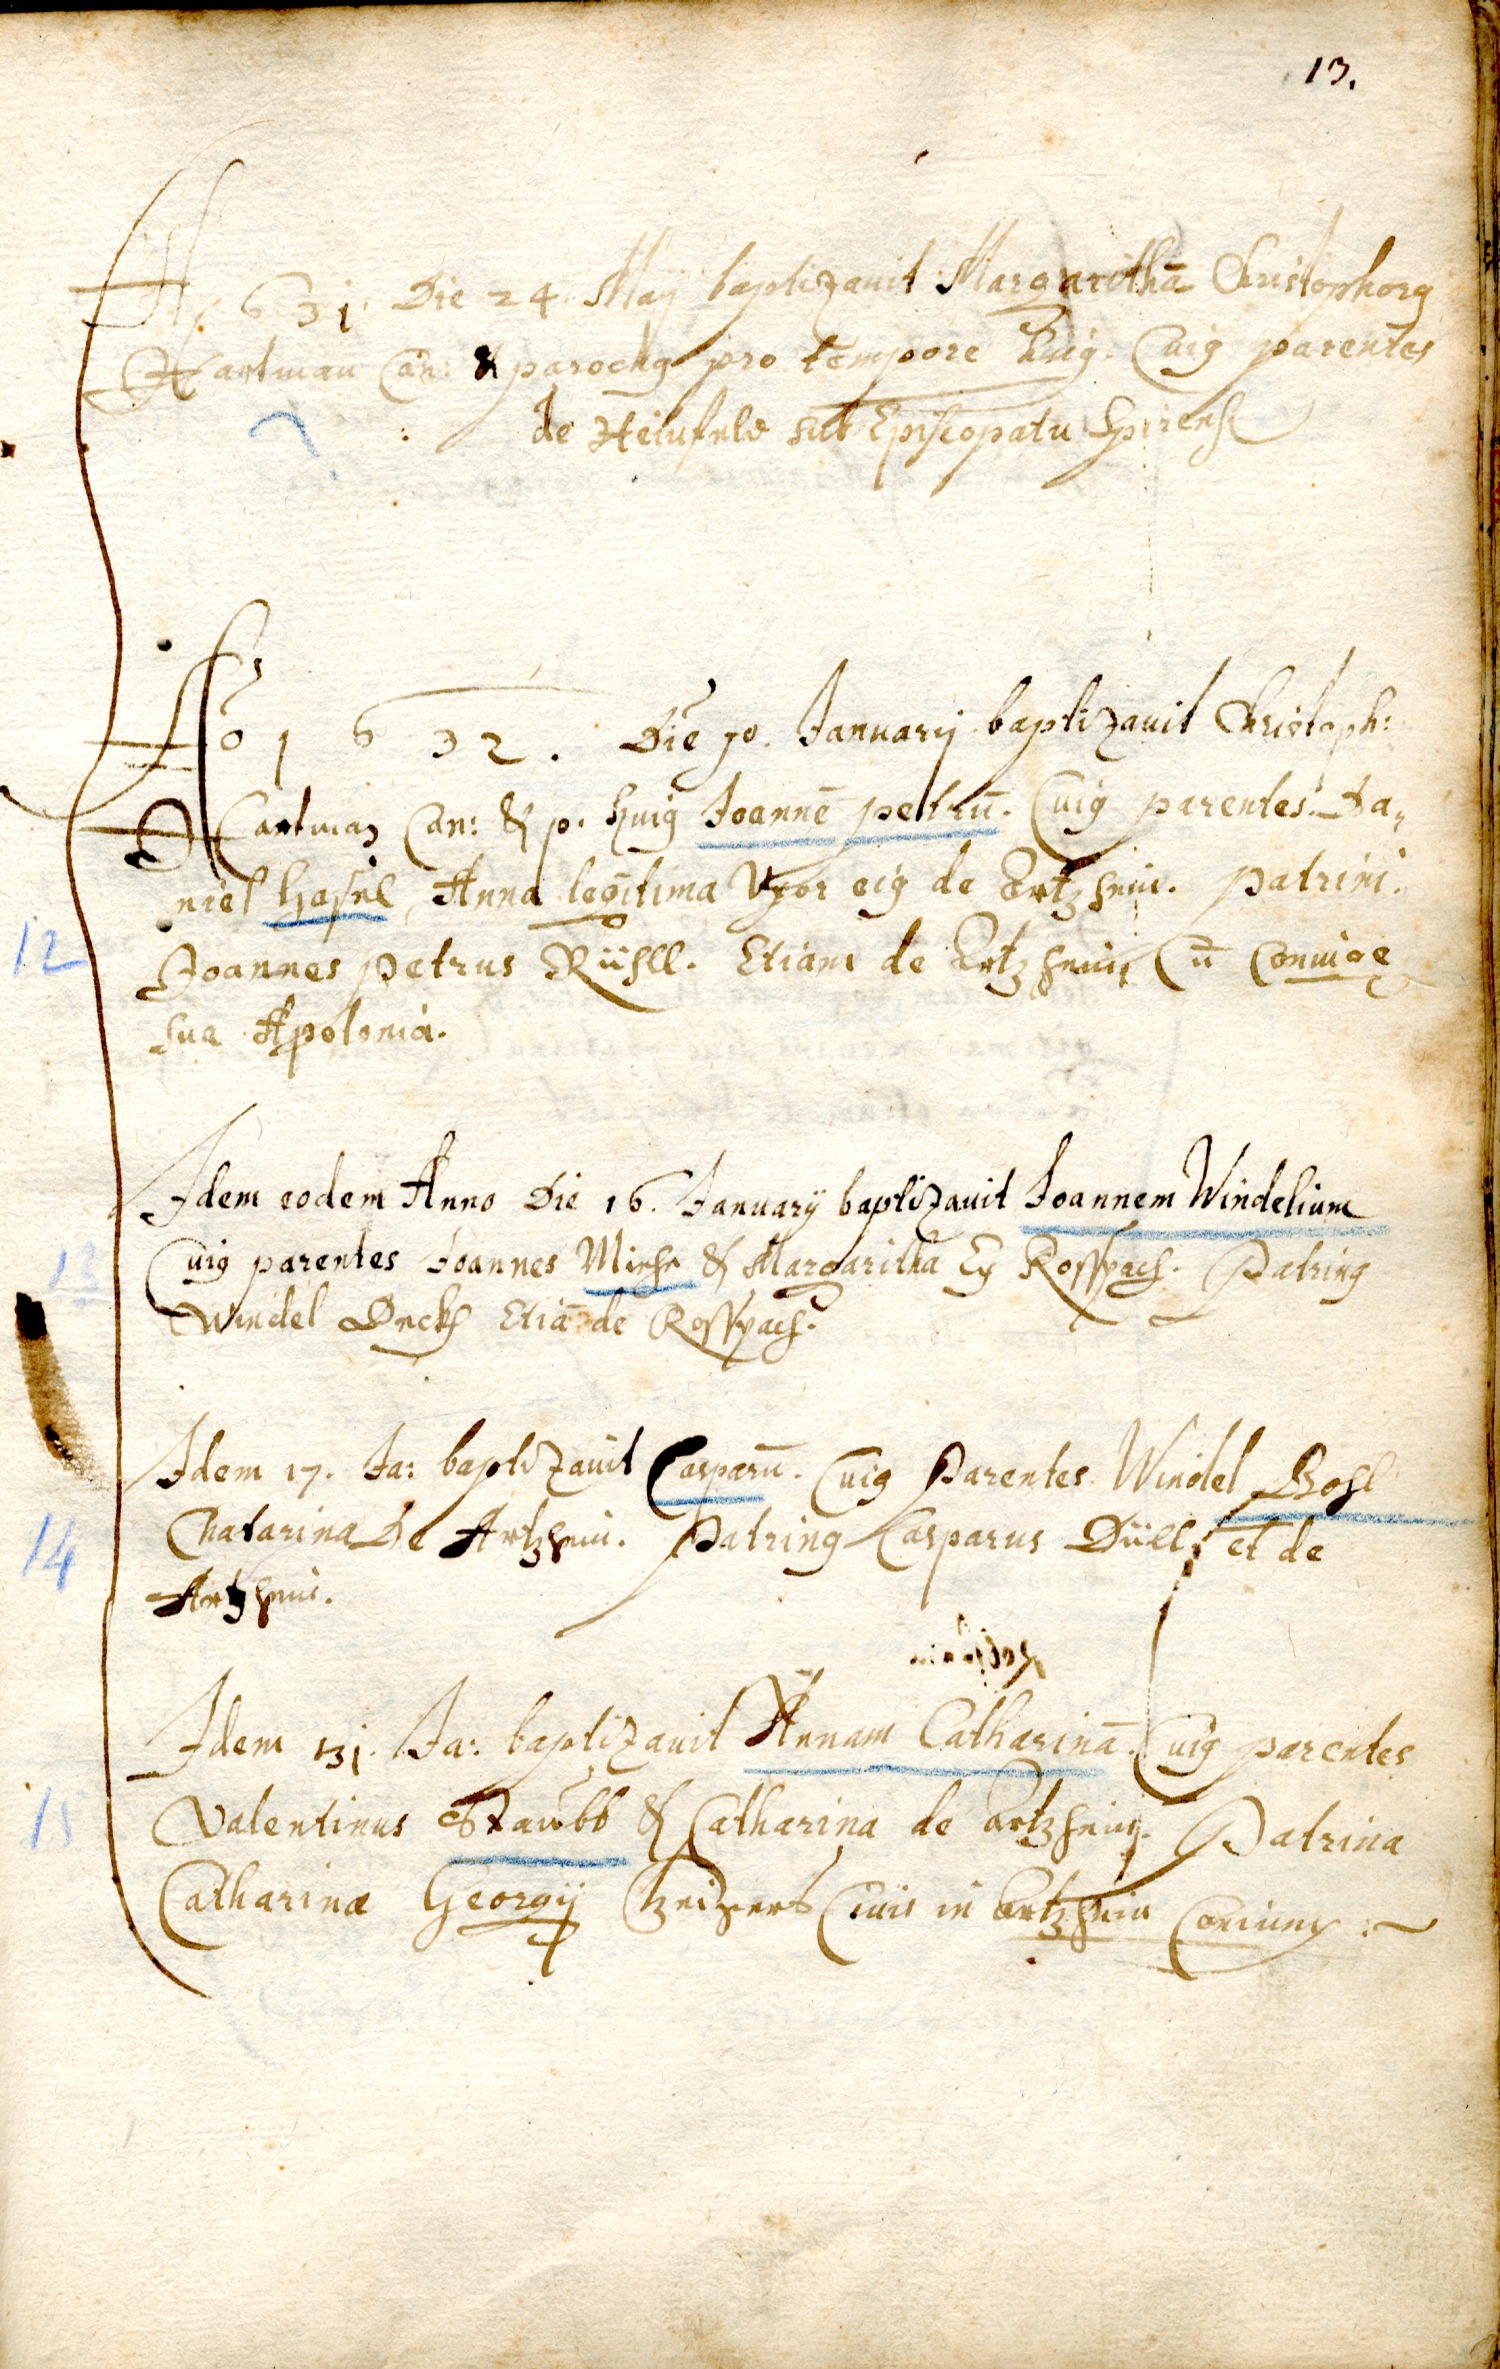 13.
A° 1631. Die 24 Maÿ baptizauit Margarithā Christophorꝰ
Hartman Can: & parochꝰ pro tempore huiꝰ. Cuiꝰ parentes
de sub Episcopatu Spirensi
Aō 1632. Die 10. Januarij baptizauit Christoph:
Hartman Can: & p. huiꝰ Joannē petrū. Cuiꝰ parentes Da„
niel Hasel, Anna legitima Vxor eiꝰ de Artzheim. Patrini.
Joannes Petrus Rühll. Etiam de Artzheim Cū Coniuge
sua Apolonia.
12
Idem eodem Anno Die 16. Januarÿ baptizauit Joannem Windelium
Cuiꝰ parentes Joannes & Margaritha Ex Rosspach. Patrinꝰ
Windel Etiā de Rosspach.
13
Idem 17. Ja: baptizauit Casparū. Cuiꝰ Parentes Windel Bohl
Chatarina De Artzheim. Patrinꝰ Casparus Düll, et de
Artzheim.
14
Idem 31. Ja: baptizauit Annam Catharinā. Cuiꝰ parentes
Valentinus Staubb & Catharina de Artzheim. Patrina
Catharina Georgÿ Ciuis in Artzheim Coniunx :~
15